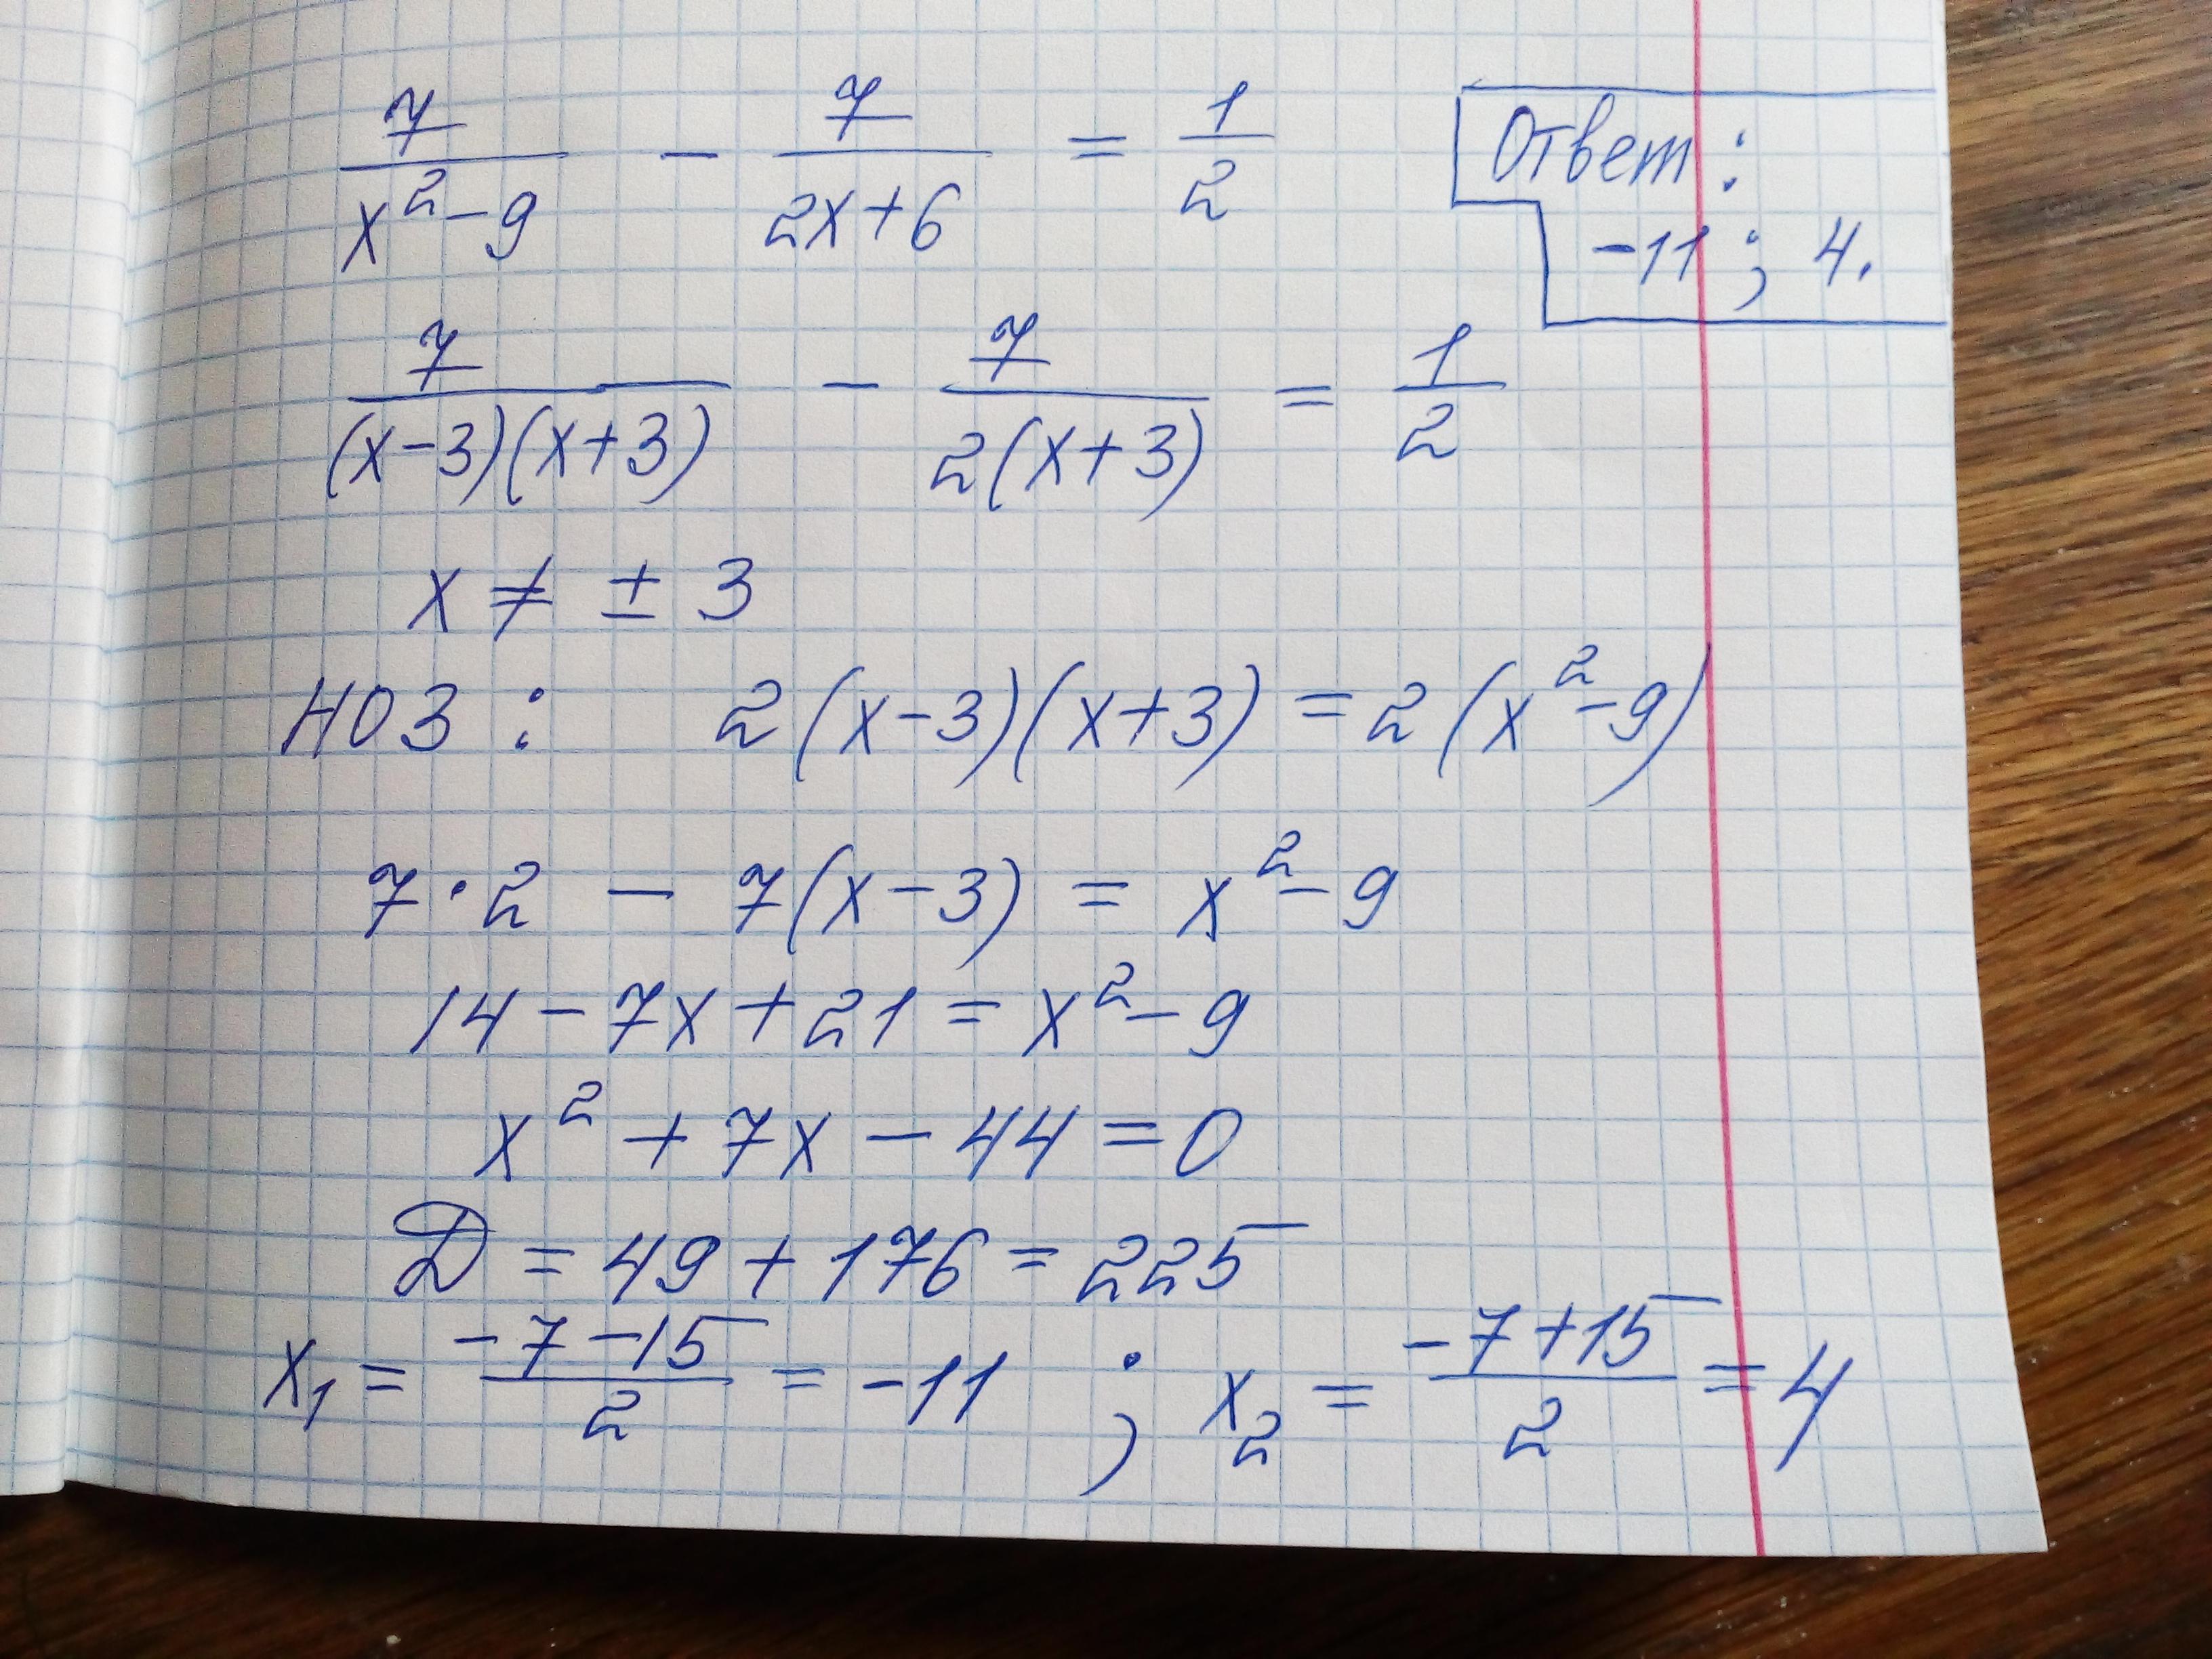 7/(x²-9) - 7/(2x+6) = 1/2
Ответ:
-11; 4.
7/((x-3)(x+3)) - 7/(2(x+3)) = 1/2
x ≠ ± 3
НОЗ: 2(x-3)(x+3) = 2(x²-9)
7·2 - 7(x-3) = x²-9
14 - 7x + 21 = x² - 9
x² + 7x - 44 = 0
D = 49 + 176 = 225
x₁ = (-7-15)/2 = -11 ; x₂ = (-7+15)/2 = 4